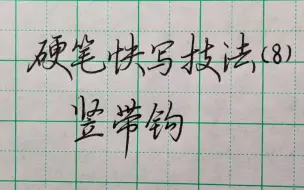 硬笔快写技法(8)
竖带钩